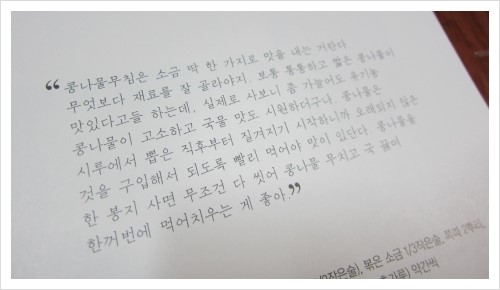 “콩나물무침은 소금 딱 한 가지로 맛을 내는 거란다.
무엇보다 재료를 잘 골라야지. 보통 통통하고 짧은 콩나물이
맛있다고들 하는데, 실제로 사보니 좀 가늘어도 유기농
콩나물이 고소하고 국물 맛도 시원하더구나. 콩나물은
시루에서 뽑은 직후부터 질겨지기 시작하니까 오래되지 않은
것을 구입해서 되도록 빨리 먹어야 맛이 있단다. 콩나물을
한 봉지 사면 무조건 다 씻어 콩나물 무치고 국 끓여
한꺼번에 먹어치우는 게 좋아.”
볶은 소금 1/3작은술, 쪽파 2뿌리,
약간씩